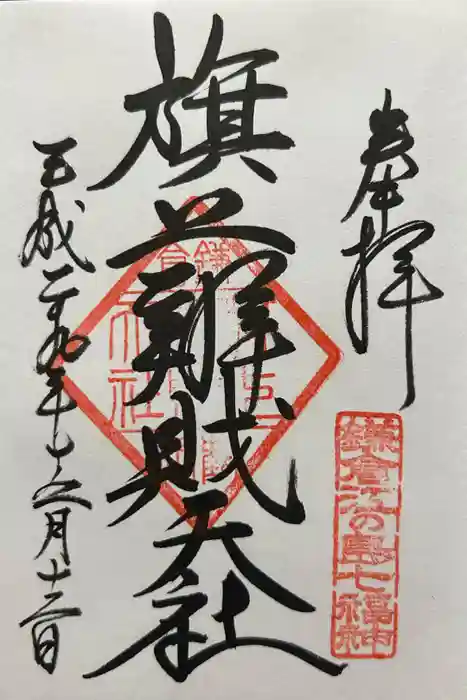 奉拝
鎌倉江の島七福神
旗上辨財天社
平成二十九年十二月十二日